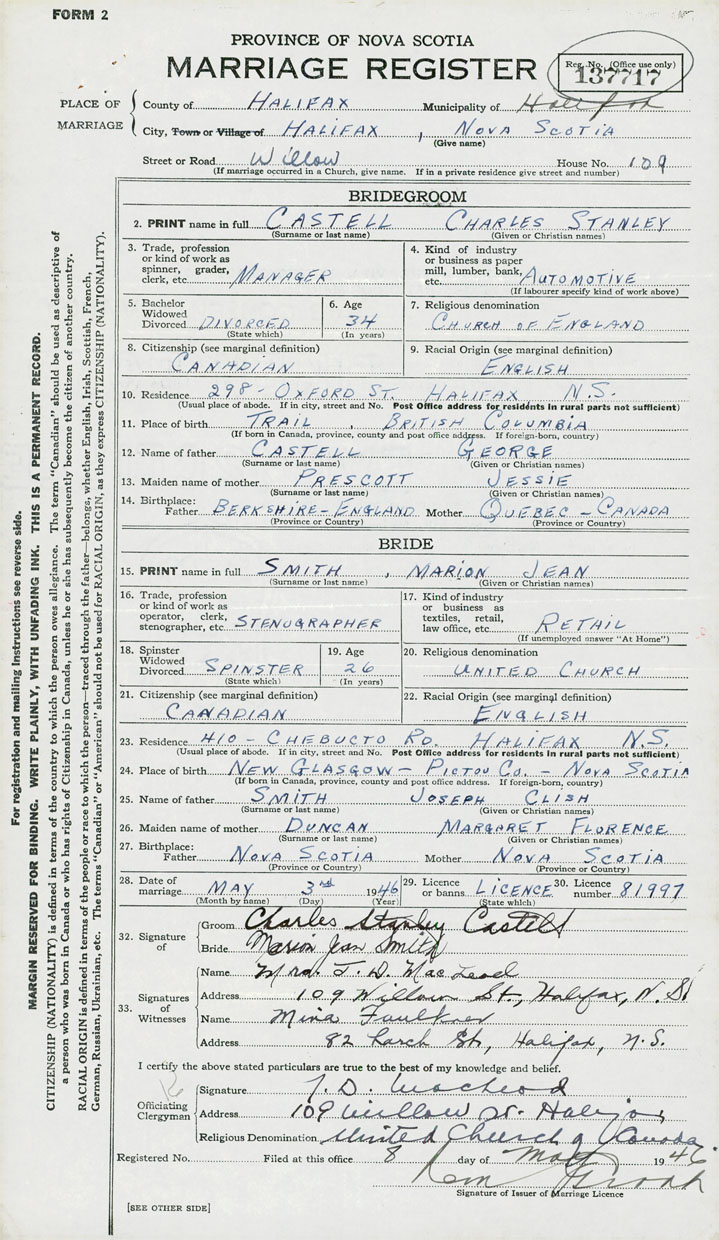 FORM 2
PROVINCE OF NOVA SCOTIA
MARRIAGE REGISTER
Reg. No. (Office use only)
137717
PLACE OF MARRIAGE
County of HALIFAX Municipality of Halifax
City, Town or Village of HALIFAX, NOVA SCOTIA
(Give name)
Street or Road Willow House No. 109
(If marriage occurred in a Church, give name. If in a private residence give street and number)
BRIDEGROOM
2. PRINT name in full CASTELL CHARLES STANLEY
(Surname or last name) (Given or Christian names)
3. Trade, profession or kind of work as spinner, grader, clerk, etc. MANAGER
4. Kind of industry or business as paper mill, lumber, bank, etc. AUTOMOTIVE
(If labourer specify kind of work above)
5. Bachelor Widowed Divorced DIVORCED
(State which)
6. Age 34
(In years)
7. Religious denomination
CHURCH OF ENGLAND
8. Citizenship (see marginal definition)
CANADIAN
9. Racial Origin (see marginal definition)
ENGLISH
10. Residence 298 - OXFORD ST. HALIFAX N.S.
(Usual place of abode. If in city, street and No. Post Office address for residents in rural parts not sufficient)
11. Place of birth TRAIL, BRITISH COLUMBIA
(If born in Canada, province, county and post office address. If foreign-born, country)
12. Name of father CASTELL GEORGE
(Surname or last name) (Given or Christian names)
13. Maiden name of mother PRESCOTT JESSIE
(Surname or last name) (Given or Christian names)
14. Birthplace:
Father BERKSHIRE - ENGLAND Mother QUEBEC - CANADA
(Province or Country) (Province or Country)
BRIDE
15. PRINT name in full SMITH, MARION JEAN
(Surname or last name) (Given or Christian names)
16. Trade, profession or kind of work as operator, clerk, stenographer, etc. STENOGRAPHER
17. Kind of industry or business as textiles, retail, law office, etc. RETAIL
(If unemployed answer "At Home")
18. Spinster Widowed Divorced SPINSTER
(State which)
19. Age 26
(In years)
20. Religious denomination
UNITED CHURCH
21. Citizenship (see marginal definition)
CANADIAN
22. Racial Origin (see marginal definition)
ENGLISH
23. Residence 410 - CHEBUCTO RD. HALIFAX N.S.
(Usual place of abode. If in city, street and No. Post Office address for residents in rural parts not sufficient)
24. Place of birth NEW GLASGOW - PICTOU CO. - NOVA SCOTIA
(If born in Canada, province, county and post office address. If foreign-born, country)
25. Name of father SMITH JOSEPH CLISH
(Surname or last name) (Given or Christian names)
26. Maiden name of mother DUNCAN MARGARET FLORENCE
(Surname or last name) (Given or Christian names)
27. Birthplace:
Father NOVA SCOTIA Mother NOVA SCOTIA
(Province or Country) (Province or Country)
28. Date of marriage MAY 3rd 1946
(Month by name) (Day) (Year)
29. Licence or banns LICENCE
(State which)
30. Licence number 81997
32. Signature of
Groom Charles Stanley Castell
Bride Marion Jean Smith
33. Signatures of Witnesses
Name Mrs. J. D. MacLeod
Address 109 Willow St., Halifax, N.S.
Name Mina Faulkner
Address 82 Larch St., Halifax, N.S.
I certify the above stated particulars are true to the best of my knowledge and belief.
Officiating Clergyman
Signature J. D. MacLeod
Address 109 Willow St. Halifax
Religious Denomination United Church of Canada
Registered No. Filed at this office 8 day of May 1946
Signature of Issuer of Marriage Licence
[SEE OTHER SIDE]
For registration and mailing instructions see reverse side.
MARGIN RESERVED FOR BINDING. WRITE PLAINLY, WITH UNFADING INK. THIS IS A PERMANENT RECORD.
CITIZENSHIP (NATIONALITY) is defined in terms of the country to which the person owes allegiance. The term "Canadian" should be used as descriptive of
a person who was born in Canada or who has rights of Citizenship in Canada, unless he or she has subsequently become the citizen of another country.
RACIAL ORIGIN is defined in terms of the people or race to which the person—traced through the father—belongs, whether English, Irish, Scottish, French,
German, Russian, Ukrainian, etc. The terms "Canadian" or "American" should not be used for RACIAL ORIGIN, as they express CITIZENSHIP (NATIONALITY).